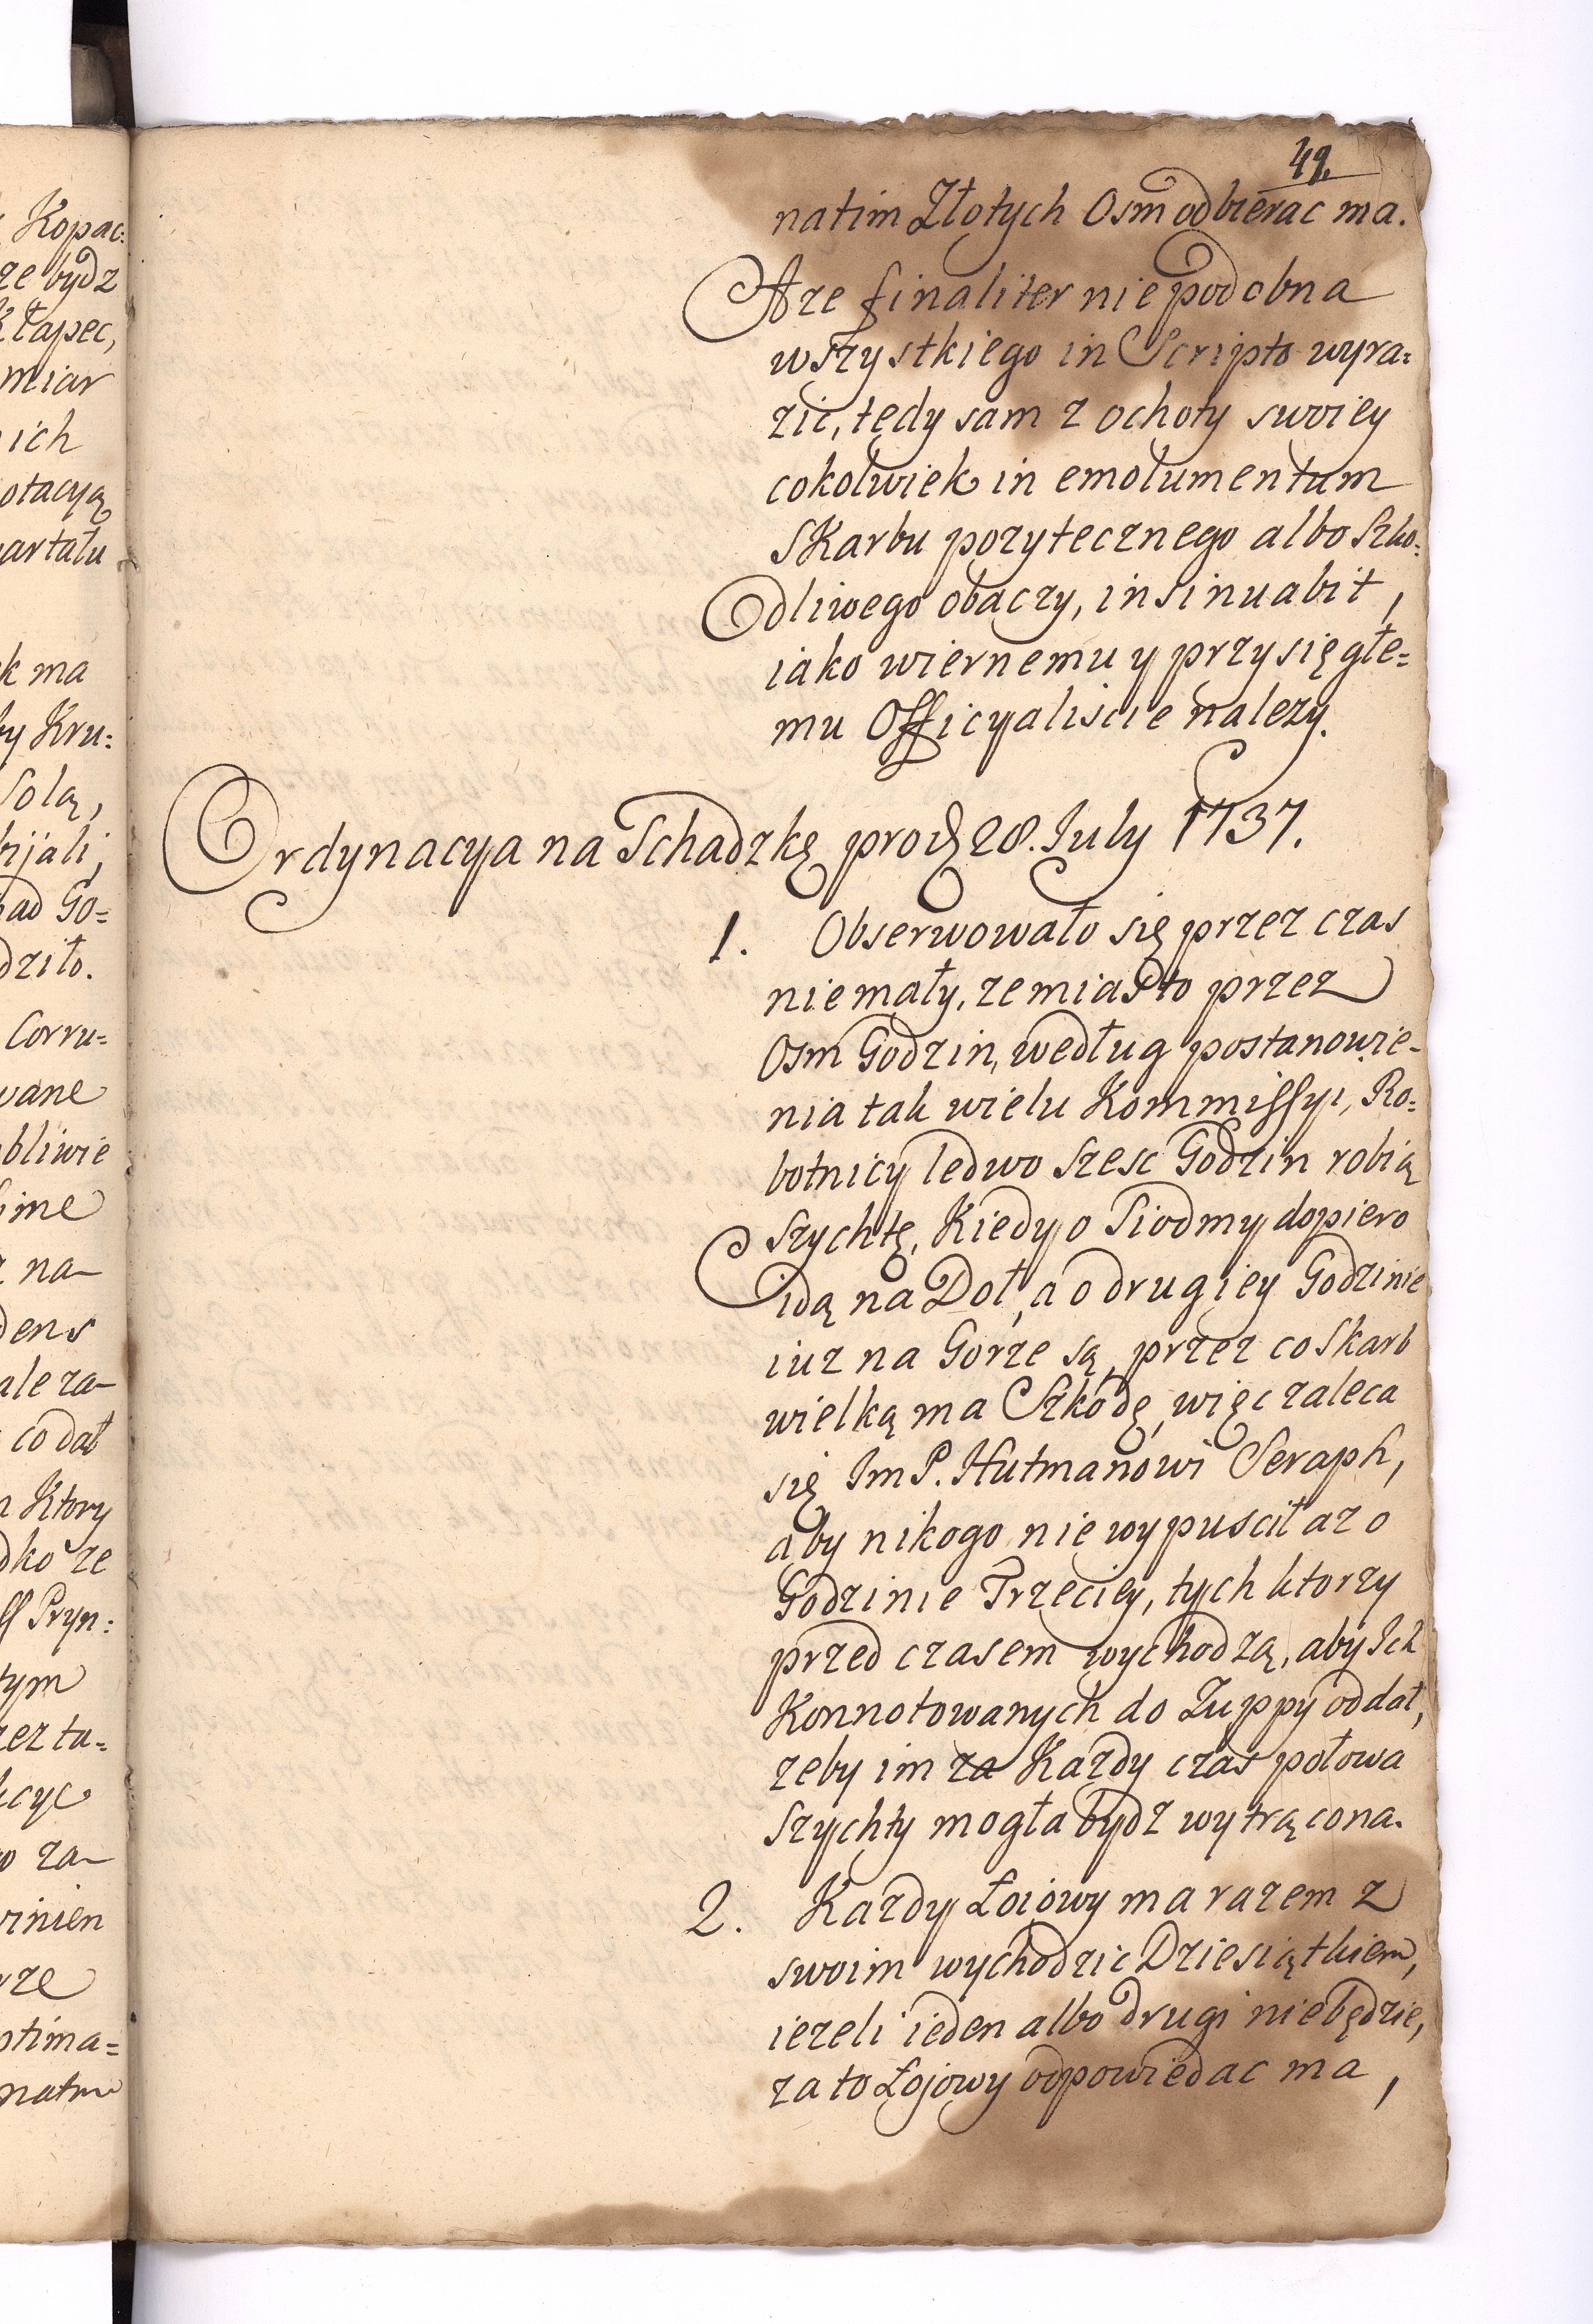 Kopac:
ze bydz
Kłapec,
miar
ich
otacyą
artału
k ma
by Kru:
Solą,
bijali,
ad Go=
dziło.
Corru=
wane
bliwie
ime
na
dens
ale za
co dał
Ktory
dko ze
Pryn:
tym
zez ta=
kcyc
za
winien
rze
ptima=
natim
49.
natim Złotych Osm odbierac ma.
A ze finaliter nie podobna
wszystkiego in Scripto wyra=
zic, tedy sam z ochoty swoiey
cokolwiek in emolumentum
Skarbu pozytecznego albo Szko=
dliwego obaczy, insinuabit,
iako wiernemu y przysięgłe=
mu Officyaliscie nalezy.
Ordynacya na Schadzkę pro d 28. July 1737.
1. Obserwowało się przez czas
niemały, ze miasto przez
Osm Godzin, według postanowie-
nia tak wielu Kommissyi, Ro=
botnicy ledwo szesc Godzin robią
Szychtę, Kiedy o Siodmy dopiero
idą na Doł, a o drugiey Godzinie
iuz na Gorze są, przez co Skarb
wielką ma Szkodę, więc zaleca
się Jm P. Hutmanowi Seraph,
aby nikogo nie wypuscił az o
Godzinie Trzeciey, tych ktorzy
przed czasem wychodzą, aby Ich
Konnotowanych do Zuppy oddał,
zeby im za Kazdy czas połowa
Szychty mogła bydz wytrącona.
2. Kazdy Łoiowy ma razem z
swoim wychodzic Dziesiątkiem,
iezeli ieden albo drugi niebędzie,
za to Łojowy odpowiedac ma,